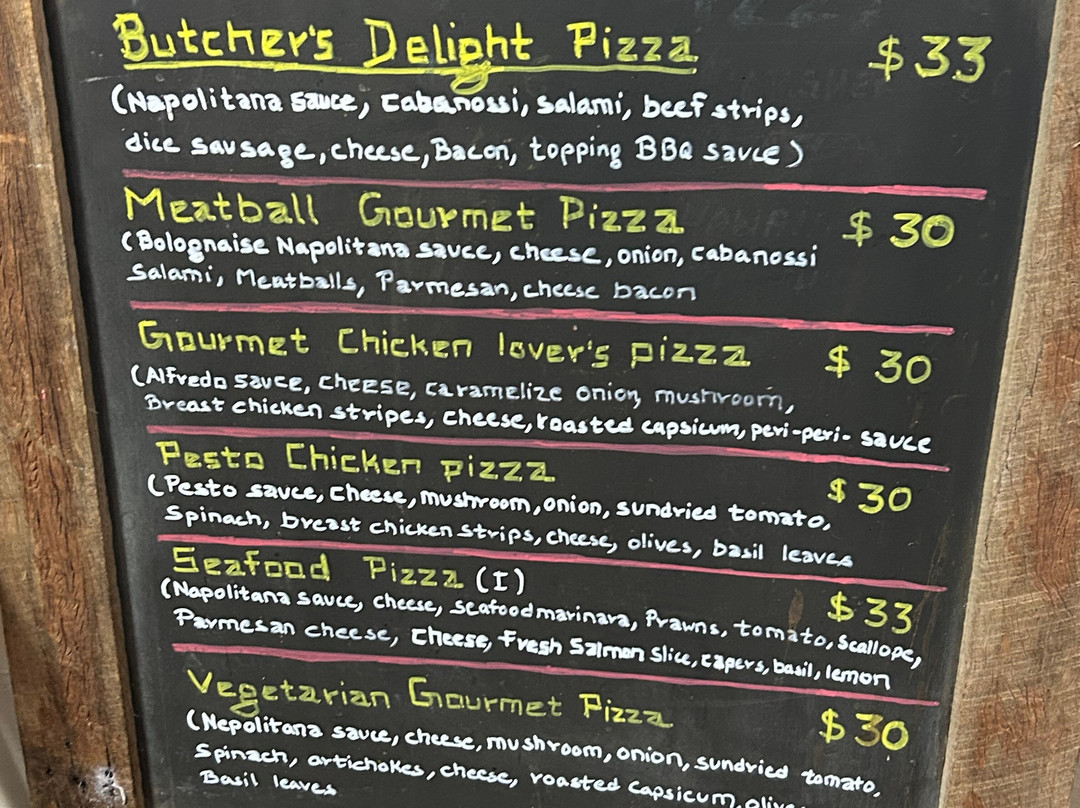 Butcher's Delight Pizza $33
(Napolitana sauce, cabanossi, salami, beef strips,
dice sausage, cheese, Bacon, topping BBQ sauce)
Meatball Gourmet Pizza $30
(Bolognaise Napolitana sauce, cheese, onion, cabanossi
Salami, Meatballs, Parmesan, cheese bacon
Gourmet Chicken lover's pizza $30
(Alfredo sauce, cheese, caramelize onion, mushroom,
Breast chicken stripes, cheese, roasted capsicum, peri-peri- sauce
Pesto Chicken pizza $30
(Pesto sauce, cheese, mushroom, onion, sundried tomato,
Spinach, breast chicken strips, cheese, olives, basil leaves
Seafood Pizza (I) $33
(Napolitana sauce, cheese, seafood marinara, Prawns, tomato, Scallope,
Parmesan cheese, cheese, Fresh Salmon slice, capers, basil, lemon
Vegetarian Gourmet Pizza $30
(Nepolitana sauce, cheese, mushroom, onion, sundried tomato,
Spinach, artichokes, cheese, roasted capsicum,
Basil leaves